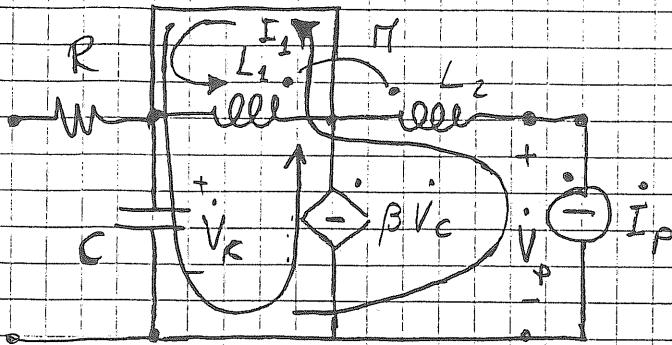 I₁ M
R L₁ L₂
+ +
C V̇ₖ − β V̇c V̇p − İp
− −